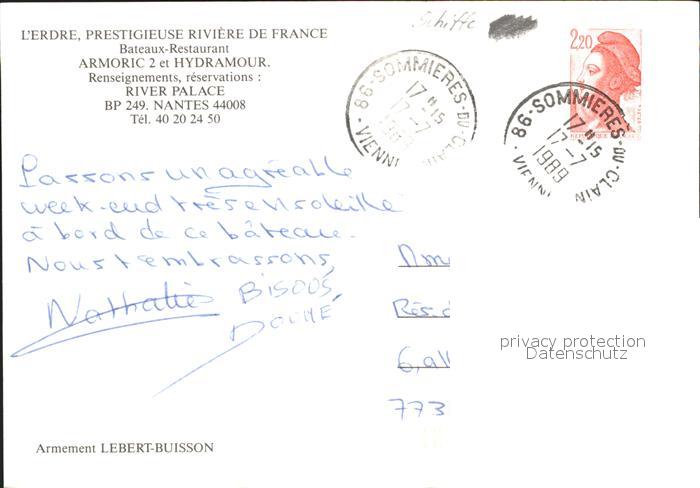 Schiffe
L'ERDRE, PRESTIGIEUSE RIVIÈRE DE FRANCE
Bateaux-Restaurant
ARMORIC 2 et HYDRAMOUR.
Renseignements, réservations :
RIVER PALACE
BP 249. NANTES 44008
Tél. 40 20 24 50
2,20
86-SOMMIERES-DU-CLAIN
17H15
17-7
1989
VIENN
86-SOMMIERES-DU-CLAIN
17H15
17-7
1989
VIENN
Passons un agréable
week-end très ensoleillé
à bord de ce bâteau.
Nous t'embrassons,
Nathalie BISOUS,
Mme
Rés.
6, all
773
privacy protection
Datenschutz
Armement LEBERT-BUISSON